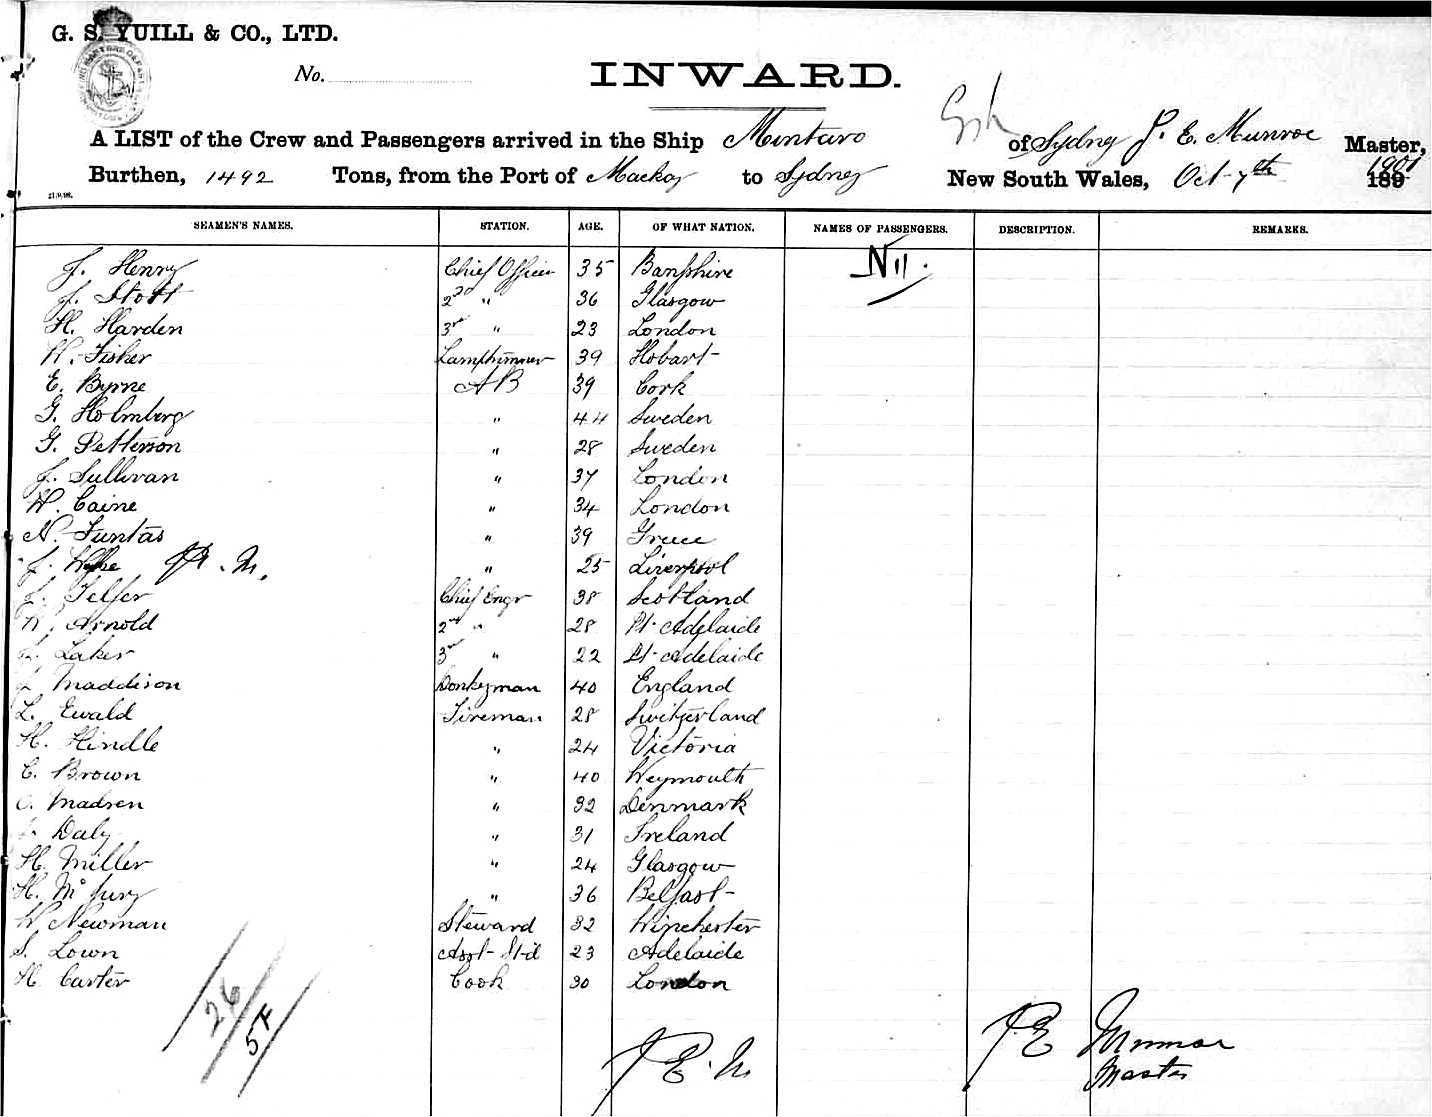 G. S. YUILL & CO., LTD.
No.
INWARD.
A LIST of the Crew and Passengers arrived in the Ship Mintaro of Sydney J. E. Munroe Master,
Burthen, 1492 Tons, from the Port of Mackay to Sydney New South Wales, Oct 7th 189 1901
21.9.98.
SEAMEN'S NAMES. STATION. AGE. OF WHAT NATION. NAMES OF PASSENGERS. DESCRIPTION. REMARKS.
J. Henry Chief Officer 35 Banfshire Nil.
J. Stott 2nd " 36 Glasgow
H. Harden 3rd " 23 London
W. Fisher Lamptrimmer 39 Hobart
E. Byrne AB 39 Cork
G. Holmberg " 44 Sweden
G. Petterson " 28 Sweden
J. Sullivan " 37 London
W. Caine " 34 London
N. Funtas " 39 Greece
J. " 25 Liverpool
J. Telfer Chief Engr 38 Scotland
W. Arnold 2nd " 28 Pt Adelaide
Laker 3rd " 22 Pt Adelaide
Maddison Donkeyman 40 England
L. Ewald Fireman 28 Switzerland
H. Hindle " 24 Victoria
C. Brown " 40 Weymouth
Madsen " 32 Denmark
Daly " 31 Ireland
H. Miller " 24 Glasgow
H. " 36 Belfast
W. Newman Steward 32 Winchester
S. Lown Asst Std 23 Adelaide
H Carter Cook 30 London
26
5F
J. E. M
J. E. Munroe
Master